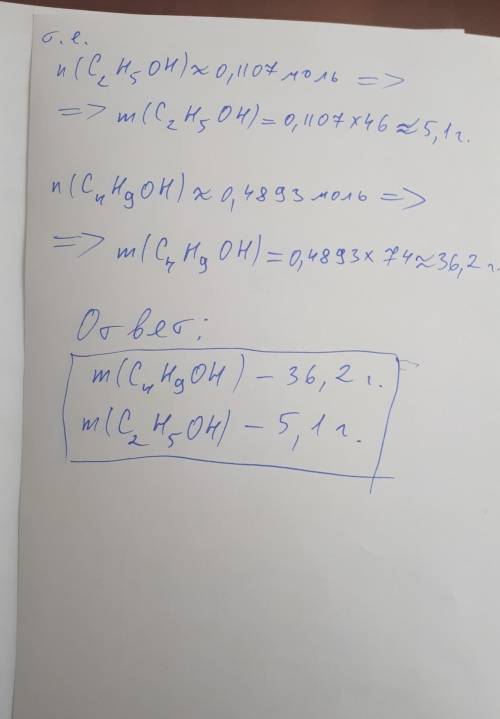 т.е.
n(C₂H₅OH) ≈ 0,1107 моль =>
=> m(C₂H₅OH) = 0,1107 × 46 ≈ 5,1 г.
n(C₄H₉OH) ≈ 0,4893 моль =>
=> m(C₄H₉OH) = 0,4893 × 74 ≈ 36,2 г.
Ответ:
m(C₄H₉OH) – 36,2 г.
m(C₂H₅OH) – 5,1 г.